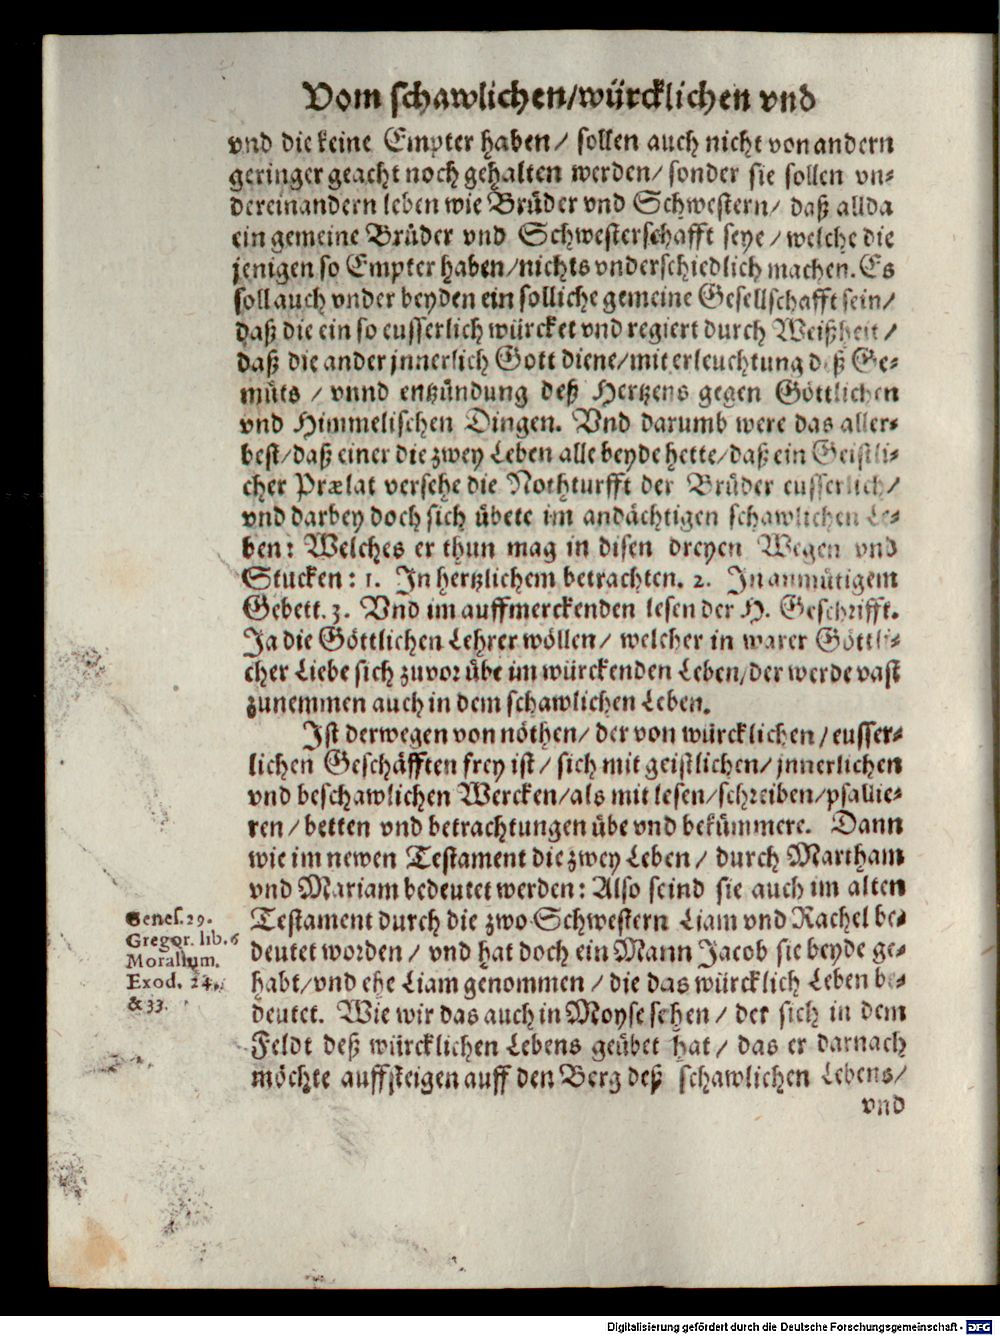 Vom schawlichen/würcklichen vnd
vnd die keine Empter haben/ sollen auch nicht von andern
geringer geacht noch gehalten werden/ sonder sie sollen vn-
dereinandern leben wie Brüder vnd Schwestern/ daß allda
ein gemeine Brüder vnd Schwesterschafft seye/ welche die
jenigen so Empter haben/nichts vnderschiedlich machen. Es
soll auch vnder beyden ein solliche gemeine Gesellschafft sein/
daß die ein so eusserlich würcket vnd regiert durch Weißheit/
daß die ander jnnerlich Gott diene/mit erleuchtung deß Ge-
müts / vnnd entzündung deß Hertzens gegen Göttlichen
vnd Himmelischen Dingen. Vnd darumb were das aller-
best/daß einer die zwey Leben alle beyde hette/daß ein Geistli-
cher Prælat versehe die Nothturfft der Brüder eusserlich/
vnd darbey doch sich übete im andächtigen schawlichen Le-
ben: Welches er thun mag in disen dreyen Wegen vnd
Stucken: 1. In hertzlichem betrachten. 2. In anmütigem
Gebett. 3. Vnd im auffmerckenden lesen der H. Geschrifft.
Ja die Göttlichen Lehrer wöllen/ welcher in warer Göttli-
cher Liebe sich zuvor übe im würckenden Leben/der werde vast
zunemmen auch in dem schawlichen Leben.
Ist derwegen von nöthen/ der von würcklichen/eusser-
lichen Geschäfften frey ist/ sich mit geistlichen/jnnerlichen
vnd beschawlichen Wercken/als mit lesen/schreiben/psallie-
ren/betten vnd betrachtungen übe vnd bekümmere. Dann
wie im newen Testament die zwey Leben/ durch Martham
vnd Mariam bedeutet werden: Also seind sie auch im alten
Testament durch die zwo Schwestern Liam vnd Rachel be-
deutet worden/ vnd hat doch ein Mann Jacob sie beyde ge-
habt/vnd ehe Liam genommen / die das würcklich Leben be-
deutet. Wie wir das auch in Moyse sehen/ der sich in dem
Feldt deß würcklichen Lebens geübet hat/ das er darnach
möchte auffsteigen auff den Berg deß schawlichen Lebens/
vnd
Genes. 29.
Gregor. lib. 6
Moralium.
Exod. 24.
& 33.
Digitalisierung gefördert durch die Deutsche Forschungsgemeinschaft - DFG